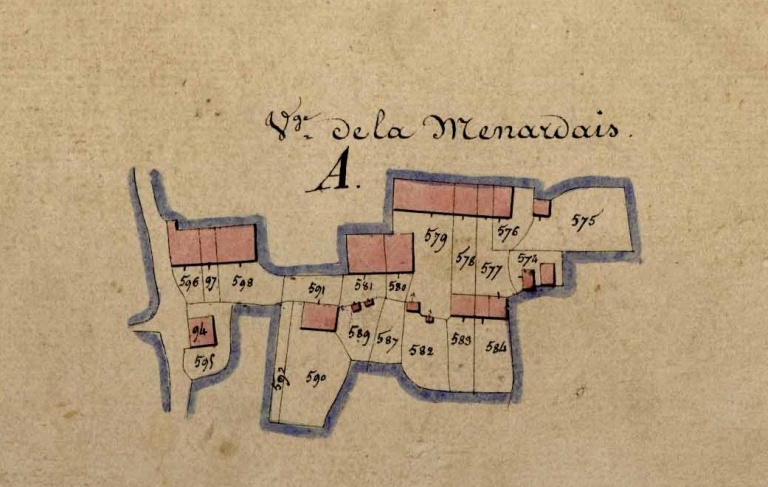 Vge de la Menardais.
A.
575
576
579
578
577
574
596
97
598
591
581
580
94
595
592
590
589
587
582
583
584